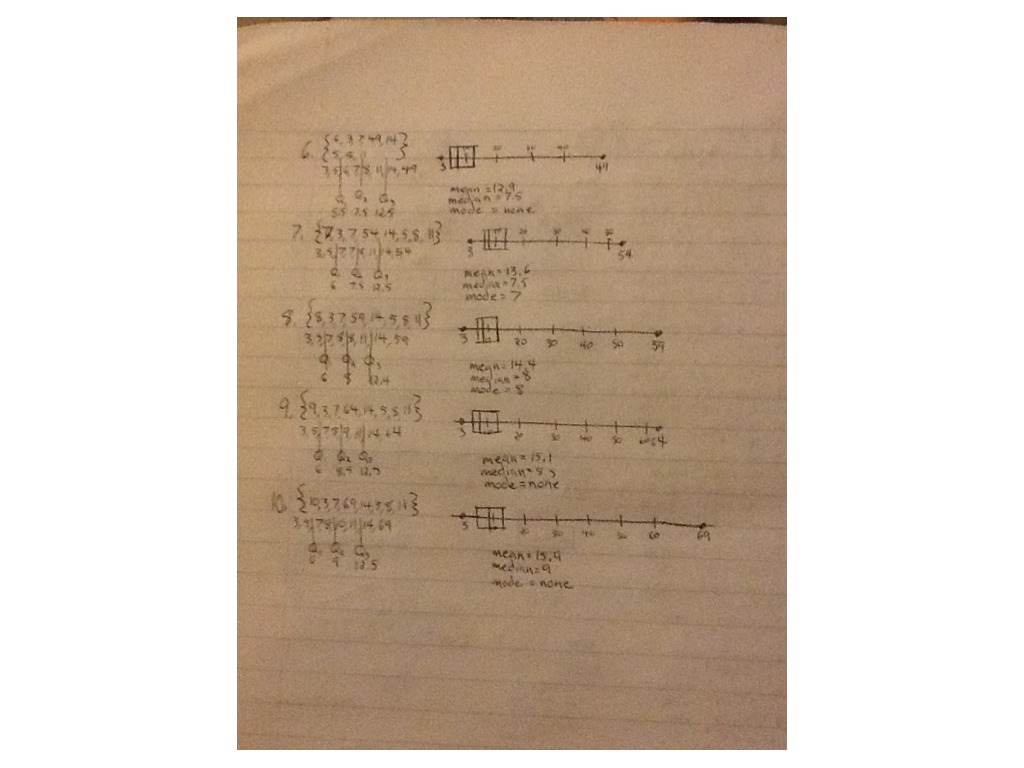 6. {6, 3, 7, 49, 14
5, 8, 11}
3, 5, 6, 7, 8, 11, 14, 49
Q₁ Q₂ Q₃
5.5 7.5 12.5
3 20 30 40 49
mean = 12.9
median = 7.5
mode = none
7. {7, 3, 7, 54, 14, 5, 8, 11}
3, 5, 7, 7, 8, 11, 14, 54
Q₁ Q₂ Q₃
6 7.5 12.5
3 20 30 40 50 54
mean = 13.6
median = 7.5
mode = 7
8. {8, 3, 7, 59, 14, 5, 8, 11}
3, 5, 7, 8, 8, 11, 14, 59
Q₁ Q₂ Q₃
6 8 12.4
3 20 30 40 50 59
mean = 14.4
median = 8
mode = 8
9. {9, 3, 7, 64, 14, 5, 8, 11}
3, 5, 7, 8, 9, 11, 14, 64
Q₁ Q₂ Q₃
6 8.5
3 20 30 40 50 60 64
mean = 15.1
median = 8.5
mode = none
10. {10, 3, 7, 69, 14, 5, 8, 11}
3, 5, 7, 8, 10, 11, 14, 69
Q₁ Q₂ Q₃
6 9 12.5
3 20 30 40 50 60 69
mean = 15.9
median = 9
mode = none